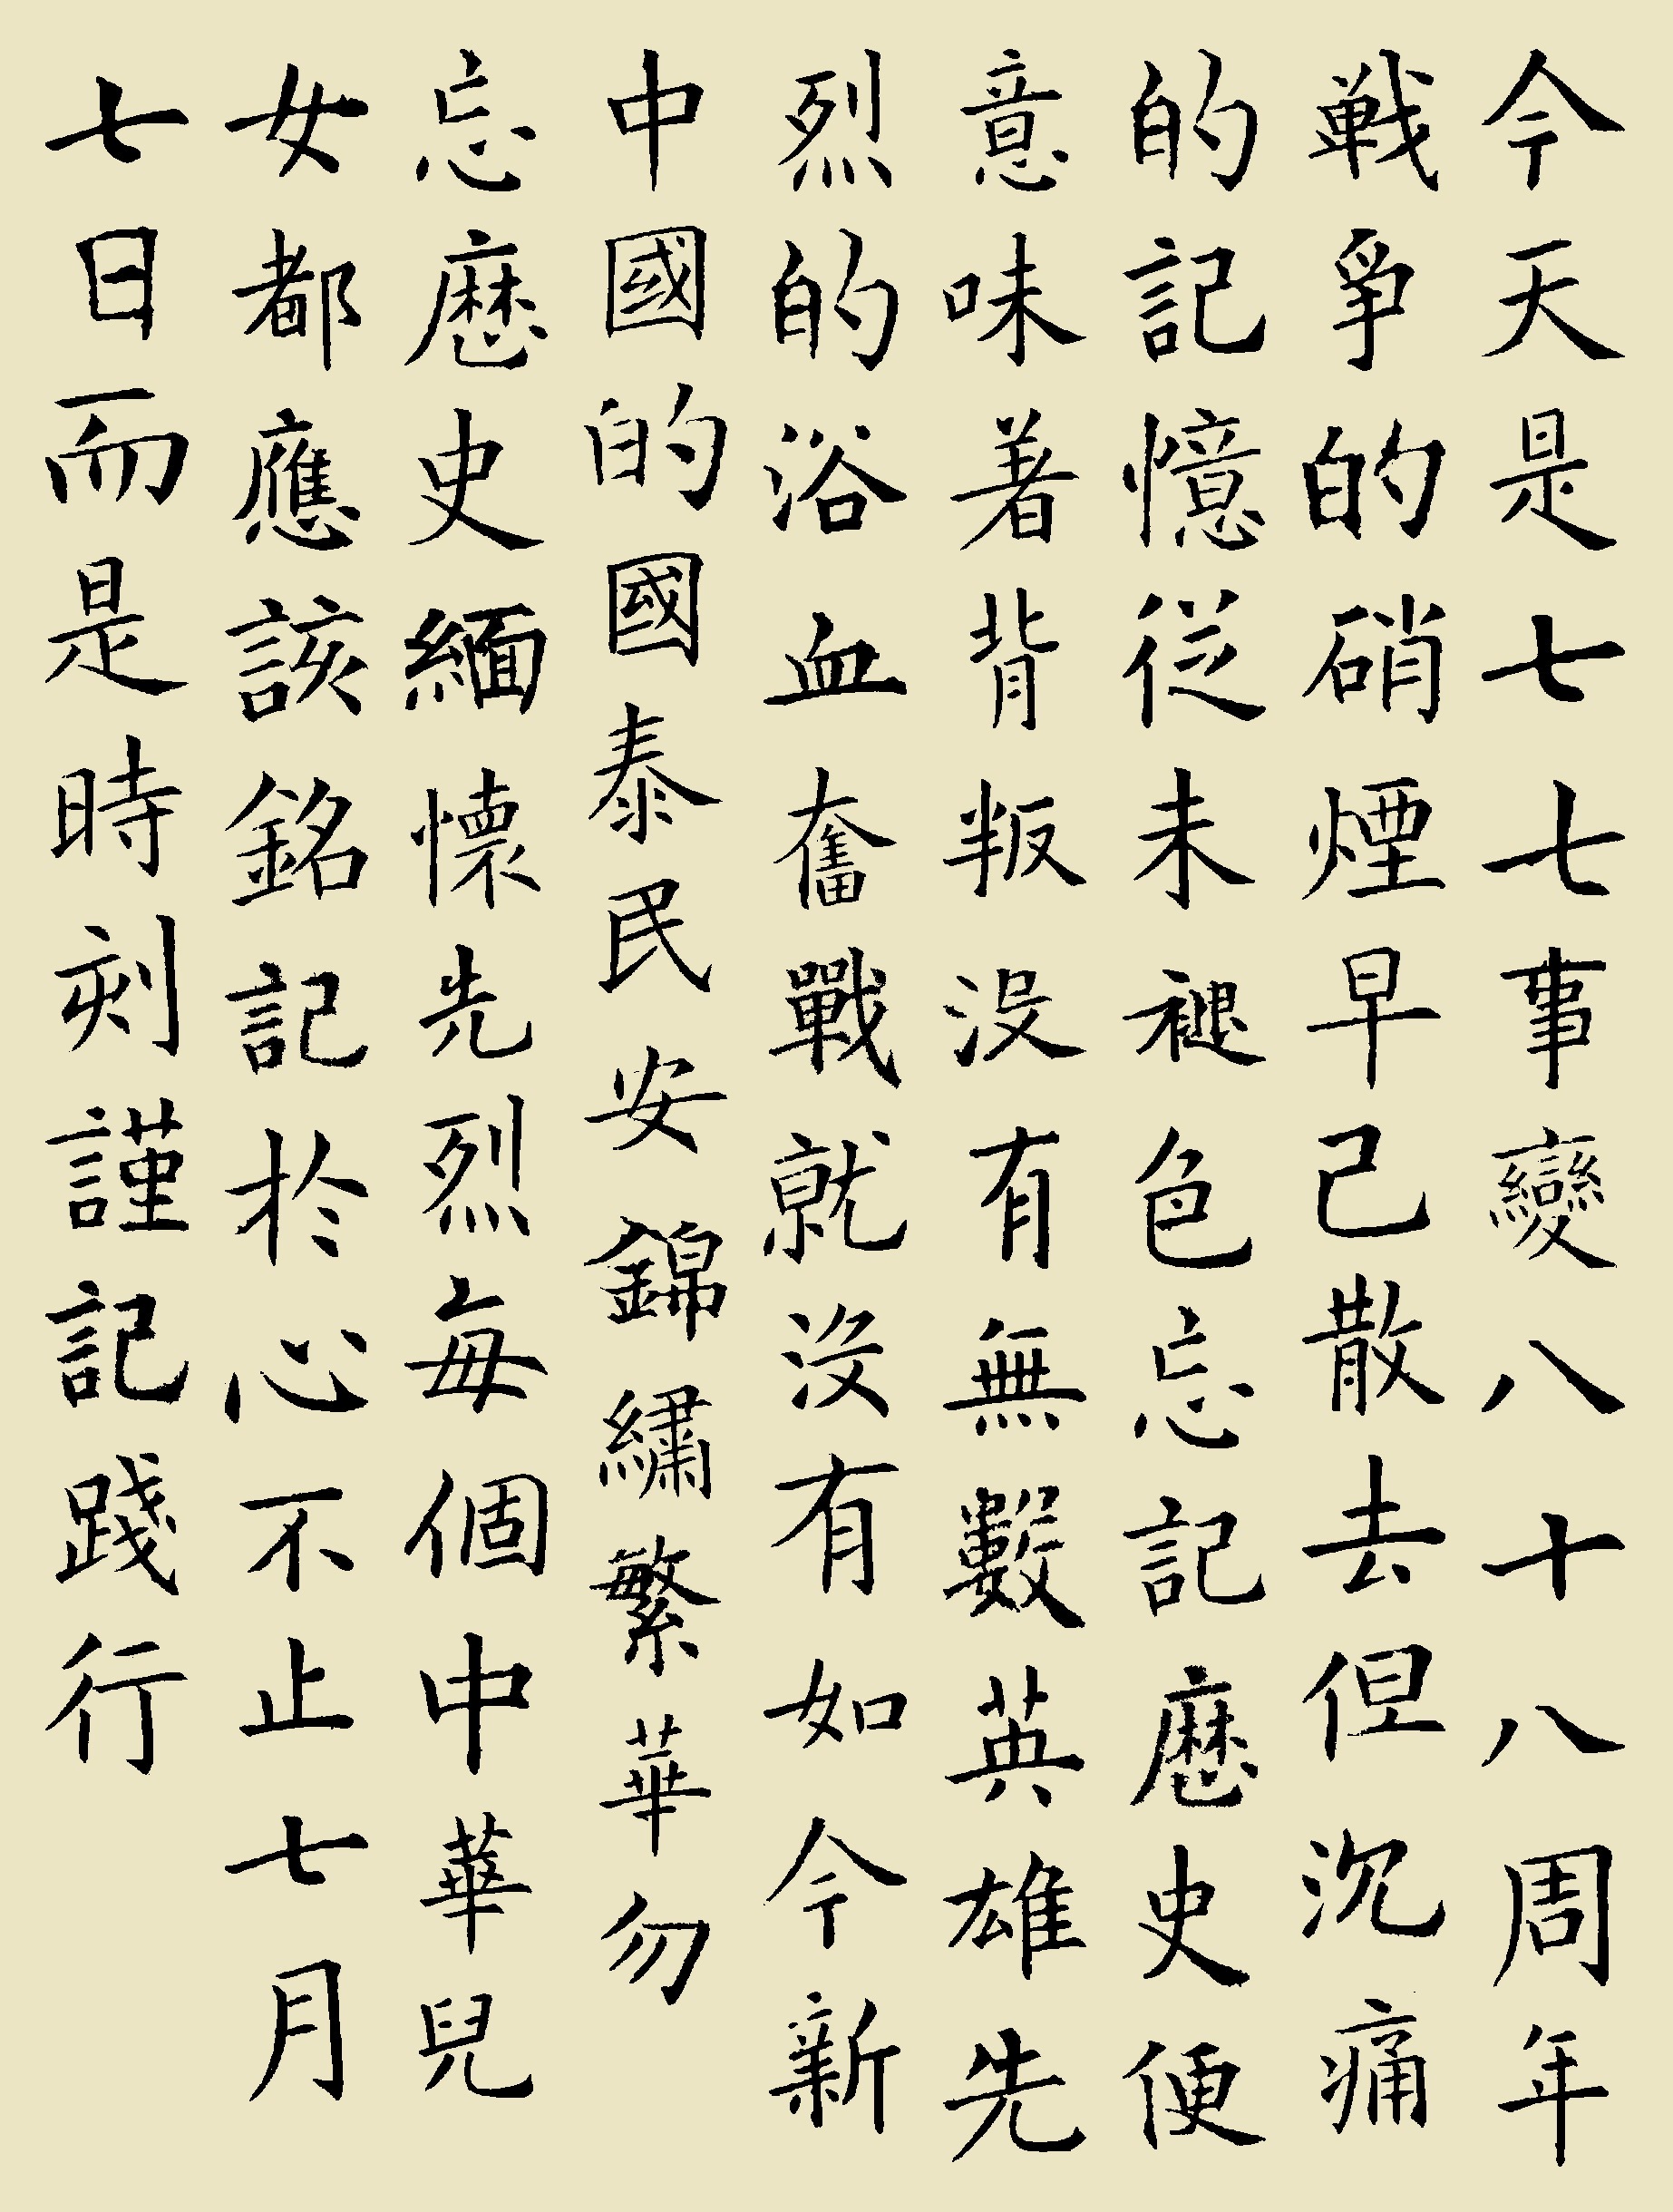 今天是七七事變八十八周年
戦爭的硝煙早已散去但沉痛
的記憶從未褪色忘記歷史便
意味著背叛没有無數英雄先
烈的浴血奮戰就没有如今新
中國的國泰民安錦繡繁華勿
忘歷史緬懷先烈每個中華兒
女都應該銘記於心不止七月
七日而是時刻謹記踐行